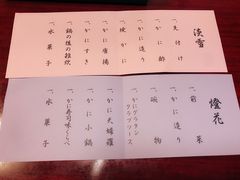 淡雪
一、先付け
一、かに酢
一、かに造り
一、焼かに
一、かに唐揚
一、かにすき
一、鍋の後の雑炊
一、水菓子
燈花
一、前菜
一、かに造り
一、椀物
一、かにグラタン
クラブソース
一、かに天婦羅
一、かに小鍋
一、かに寿司味くらべ
一、水菓子